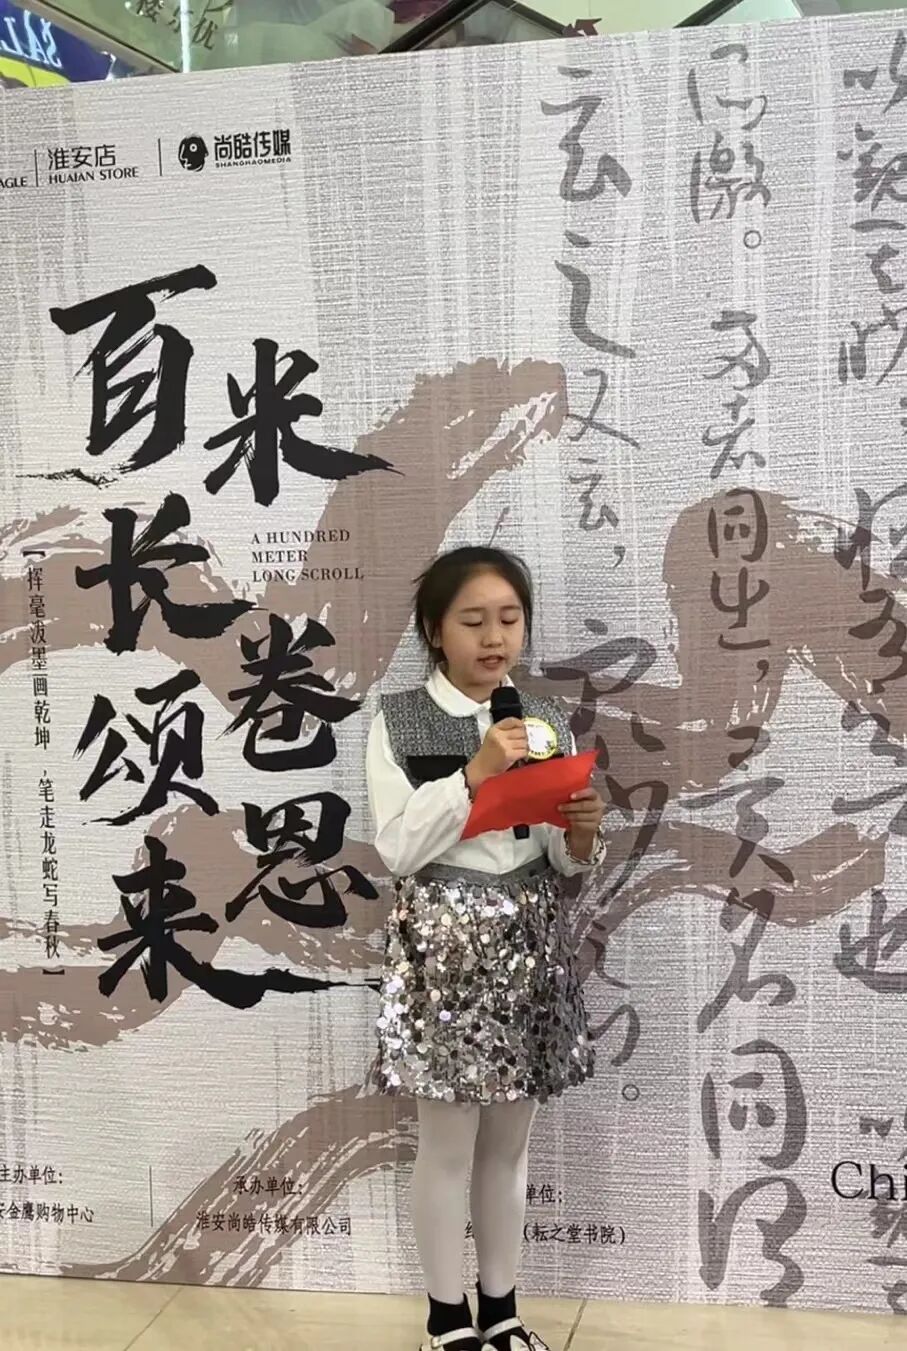 SAL
AGLE
淮安店
HUAIAN STORE
尚皓传媒
SHANGHAOMEDIA
百米
长卷
颂恩
来
A HUNDRED
METER
LONG SCROLL
【挥毫泼墨画乾坤,笔走龙蛇写春秋】
玄之又玄,
两者同出,
异名同谓
主办单位:
安金鹰购物中心
承办单位:
淮安尚皓传媒有限公司
单位:
(耘之堂书院)
Chi